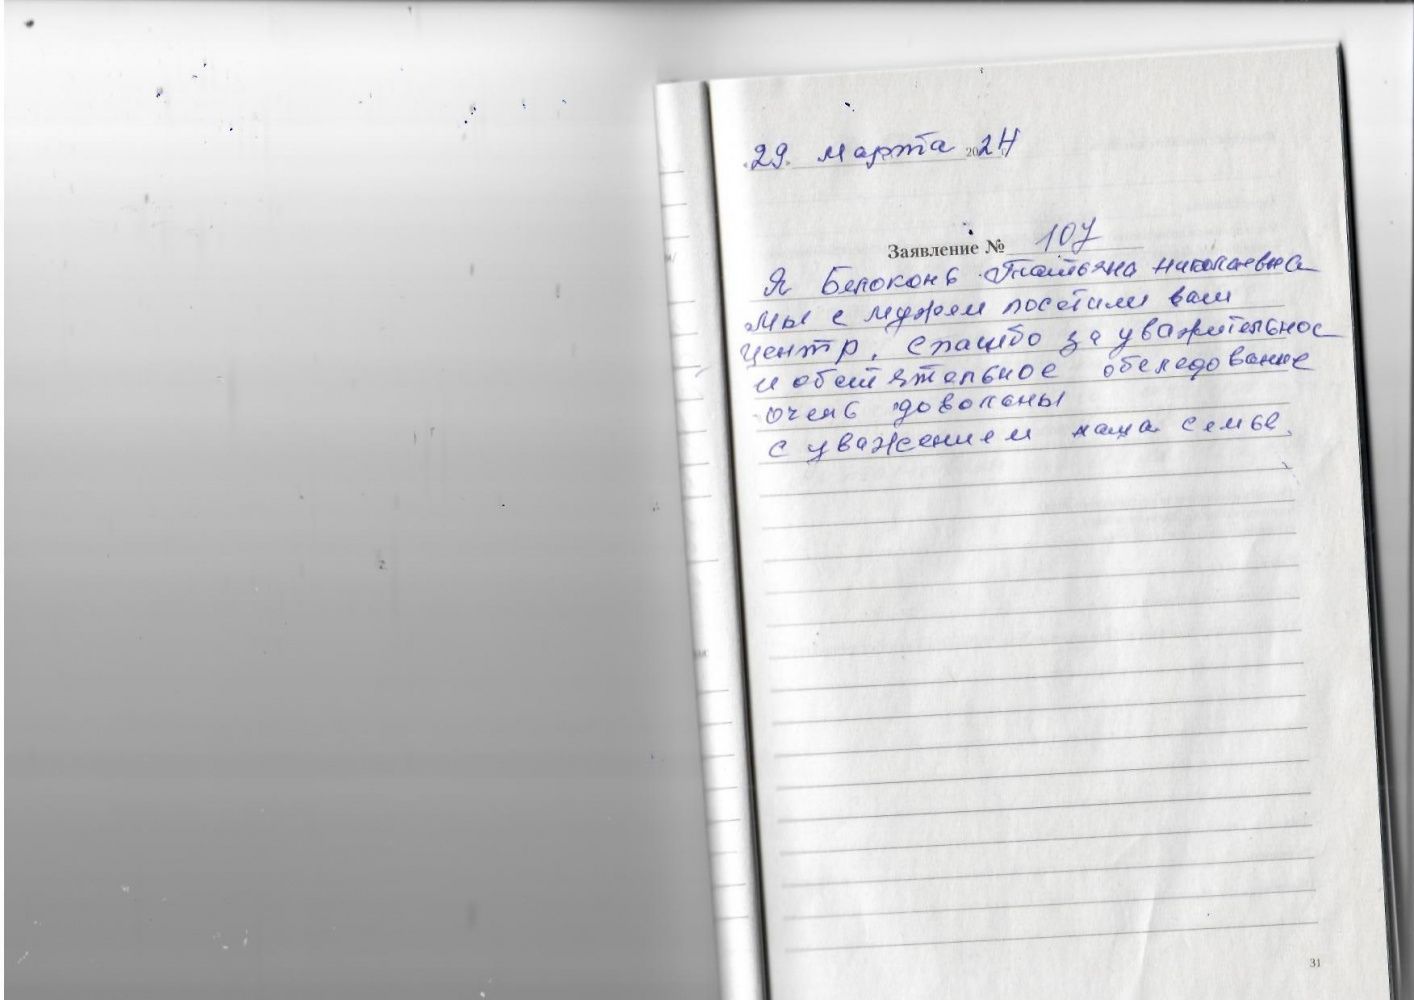 «29» марта 2024
Заявление № 107
Я Белоконь Татьяна Николаевна
мы с мужем посетили ваш
центр, спасибо за уважительное
и обстоятельное обследование
очень довольны
с уважением наша семья.
31